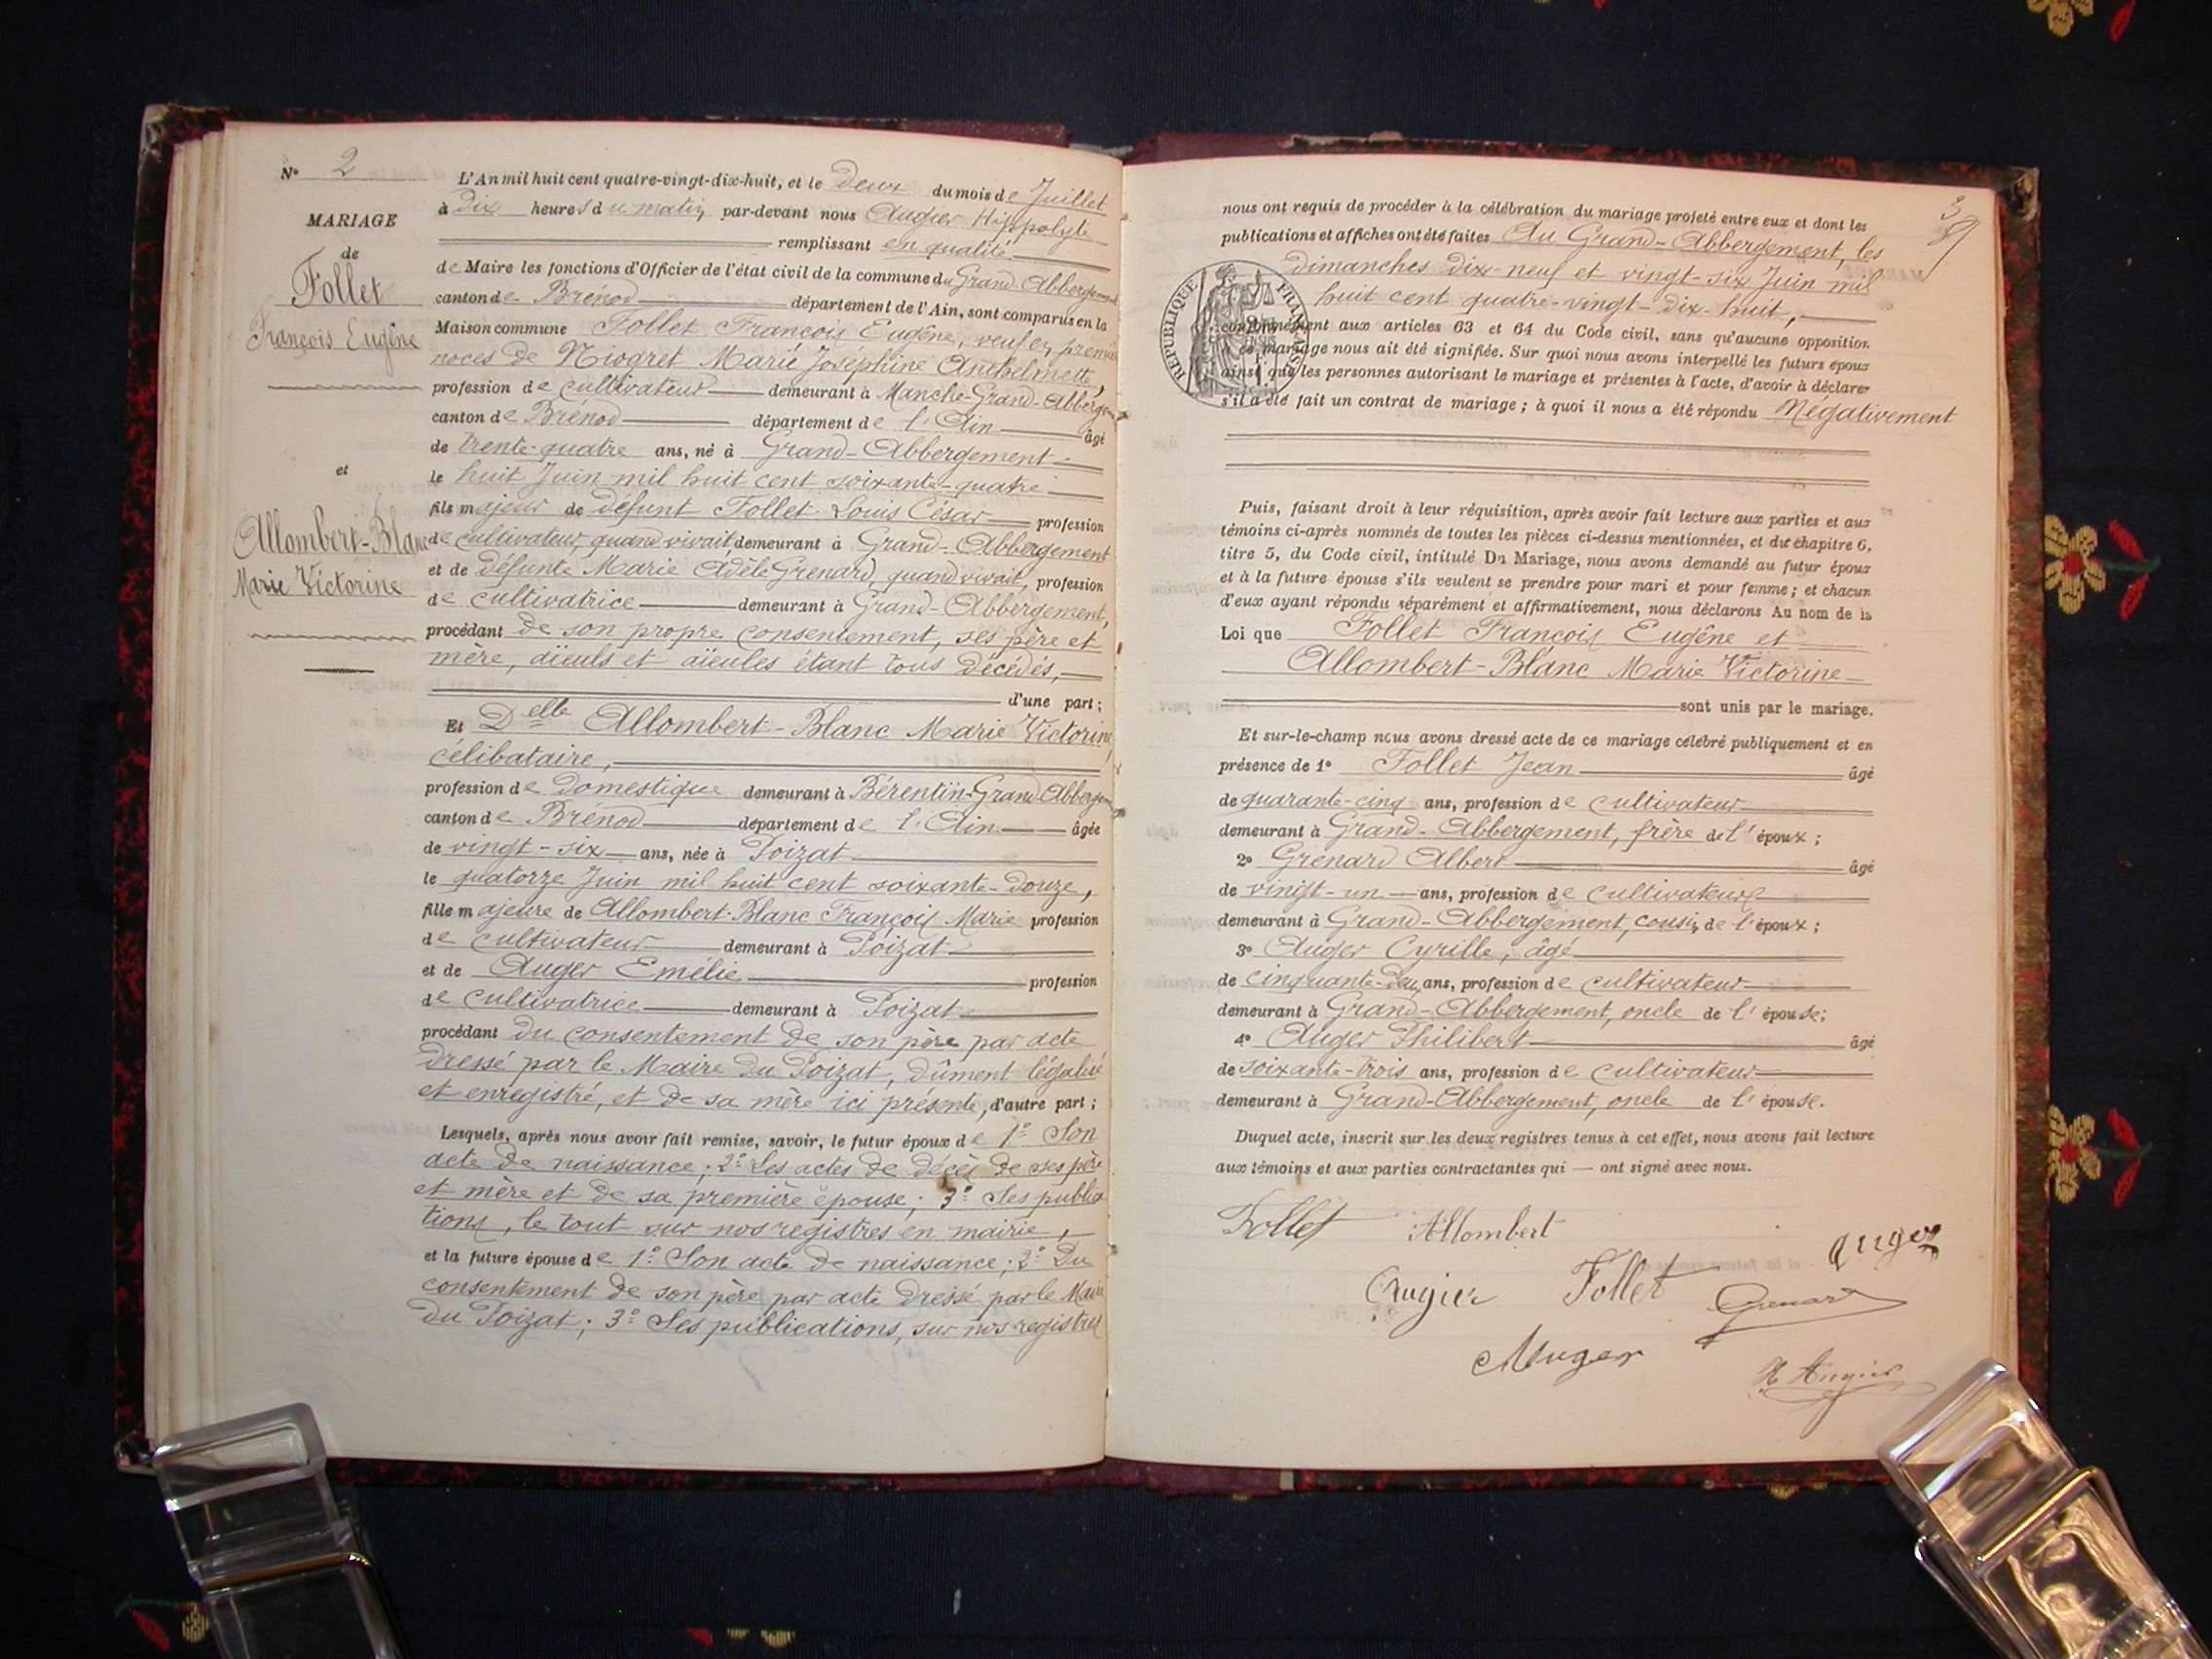 N° 2
MARIAGE
de
Follet
François Eugêne
et
Allombert-Blanc
Marie Victorine
L'An mil huit cent quatre-vingt-dix-huit, et le Deux du mois de Juillet
à Dix heures du matin par-devant nous Augier Hippolyte
remplissant en qualité
de Maire les fonctions d'Officier de l'état civil de la commune du Grand-Abbergement
canton de Brénod département de l'Ain, sont comparus en la
Maison commune Follet François Eugêne, veuf en premières
noces de Niogret Marie Joséphine Anthelmette,
profession de cultivateur demeurant à Manche-Grand-Abbergem
canton de Brénod département de l'Ain âgé
de trente-quatre ans, né à Grand-Abbergement
le huit Juin mil huit cent soixante-quatre
fils majeur de défunt Follet Louis César profession
de cultivateur, quand vivait, demeurant à Grand-Abbergement
et de défunte Marie Adèle Grenard, quand vivait, profession
de cultivatrice demeurant à Grand-Abbergement,
procédant de son propre consentement, ses père et
mère, aïeuls et aïeules étant tous décédés,
d'une part ;
Et Delle Allombert-Blanc Marie Victorine
célibataire,
profession de Domestique demeurant à Bérentin-Grand-Abbergem
canton de Brénod département de l'Ain âgée
de vingt-six ans, née à Poizat
le quatorze Juin mil huit cent soixante-douze,
fille majeure de Allombert-Blanc François Marie profession
de cultivateur demeurant à Poizat
et de Auger Emélie profession
de cultivatrice demeurant à Poizat
procédant du consentement de son père par acte
dressé par le Maire du Poizat, dûment légalisé
et enregistré, et de sa mère ici présente, d'autre part ;
Lesquels, après nous avoir fait remise, savoir, le futur époux de 1° Son
acte de naissance ; 2° Les actes de décès de ses père
et mère et de sa première épouse ; 3° Ses publica
tions, le tout sur nos registres en mairie,
et la future épouse de 1° Son acte de naissance ; 2° Du
consentement de son père par acte dressé par le Maire
du Poizat ; 3° Ses publications, sur nos registres
3
nous ont requis de procéder à la célébration du mariage projeté entre eux et dont les
publications et affiches ont été faites Au Grand-Abbergement, les
dimanches dix-neuf et vingt-six Juin mil
huit cent quatre-vingt-dix-huit,
REPUBLIQUE FRANÇAISE
conformément aux articles 63 et 64 du Code civil, sans qu'aucune opposition
à ce mariage nous ait été signifiée. Sur quoi nous avons interpellé les futurs époux
ainsi que les personnes autorisant le mariage et présentes à l'acte, d'avoir à déclarer
s'il a été fait un contrat de mariage ; à quoi il nous a été répondu Négativement
Puis, faisant droit à leur réquisition, après avoir fait lecture aux parties et aux
témoins ci-après nommés de toutes les pièces ci-dessus mentionnées, et du chapitre 6,
titre 5, du Code civil, intitulé Du Mariage, nous avons demandé au futur époux
et à la future épouse s'ils veulent se prendre pour mari et pour femme ; et chacun
d'eux ayant répondu séparément et affirmativement, nous déclarons Au nom de la
Loi que Follet François Eugêne et
Allombert-Blanc Marie Victorine
sont unis par le mariage.
Et sur-le-champ nous avons dressé acte de ce mariage célébré publiquement et en
présence de 1° Follet Jean âgé
de quarante-cinq ans, profession de cultivateur
demeurant à Grand-Abbergement, frère de l'époux ;
2° Grenard Albert âgé
de vingt-un ans, profession de cultivateur
demeurant à Grand-Abbergement, cousin de l'époux ;
3° Auger Cyrille, âgé
de cinquante-deux ans, profession de cultivateur
demeurant à Grand-Abbergement, oncle de l'épouse ;
4° Auger Philibert âgé
de soixante-trois ans, profession de cultivateur
demeurant à Grand-Abbergement, oncle de l'épouse.
Duquel acte, inscrit sur les deux registres tenus à cet effet, nous avons fait lecture
aux témoins et aux parties contractantes qui — ont signé avec nous.
Follet Allombert
Auger
Augier Follet Grenard
Auger
H Augier